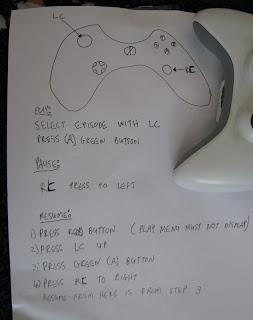 LC
RC
PLAY:
SELECT EPISODE WITH LC
PRESS (A) GREEN BUTTON
PAUSE:
RC PRESS TO LEFT
RESUME:
1) PRESS BUTTON (PLAY MENU MUST NOT DISPLAY)
2) PRESS LC UP
3) PRESS GREEN (A) BUTTON
4) PRESS RC TO RIGHT
RESUME FROM HERE IS FROM STEP 3